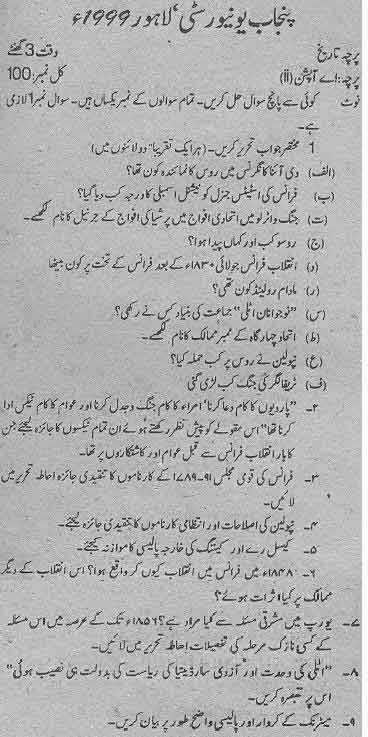 پنجاب یونیورسٹی، لاہور 1999ء
پرچہ تاریخ
وقت 3 گھنٹے
پرچہ: اے آپشن (ii)
کل نمبر: 100
نوٹ کوئی سے پانچ سوال حل کریں۔ تمام سوالوں کے نمبر یکساں ہیں۔ سوال نمبر 1 لازمی
ہے۔
1 مختصر جواب تحریر کریں۔ (ہر ایک تقریباً دو لائنوں میں)
(الف) وی آنا کانگرنس میں روس کا نمائندہ کون تھا؟
(ب) فرانس کی اسٹیٹس جنرل کو نیشنل اسمبلی کا درجہ کب دیا گیا؟
(ت) جنگ واٹرلو میں اتحادی افواج میں پرشیا کی افواج کے جرنیل کا نام لکھیے۔
(ج) روسو کب اور کہاں پیدا ہوا؟
(د) انقلاب فرانس جولائی ۱۸۳۰ء کے بعد فرانس کے تخت پر کون بیٹھا
(ر) مادام رولینڈ کون تھی؟
(س) "نوجوانان اٹلی" جماعت کی بنیاد کس نے رکھی؟
(ط) اتحاد چہار گانہ کے ممبر ممالک کا نام لکھیے۔
(ع) نپولین نے روس پر کب حملہ کیا؟
(ف) ٹریفالگر کی جنگ کب لڑی گئی
۲۔ "پادریوں کا کام دعا کرنا، امراء کا کام جنگ و جدل کرنا اور عوام کا کام ٹیکس ادا
کرنا تھا" اس مقولے کو پیش نظر رکھتے ہوئے ان تمام ٹیکسوں کا جائزہ لیجئے جن
کا بار انقلاب فرانس سے قبل عوام اور کاشتکاروں پر تھا۔
۳۔ فرانس کی قومی مجلس ۹۱-۱۷۸۹ء کے کارناموں کا تنقیدی جائزہ احاطہ تحریر میں
لائیں۔
۴۔ نپولین کی اصلاحات اور انتظامی کارناموں کا تنقیدی جائزہ لیجئے۔
۵۔ کیسل رے اور کیننگ کی خارجہ پالیسی کا موازنہ کیجئے۔
۶۔ ۱۸۴۸ء میں فرانس میں انقلاب کیوں کر واقع ہوا؟ اس انقلاب کے دیگر
ممالک پر کیا اثرات ہوئے؟
۷۔ یورپ میں مشرقی مسئلہ سے کیا مراد ہے؟ ۱۸۵۶ء تک کے عرصہ میں اس مسئلہ
کے کسی نازک مرحلہ کی تفصیلات احاطہ تحریر میں لائیں۔
۸۔ "اٹلی کی وحدت اور آزادی سارڈینیا کی ریاست کی بدولت ہی نصیب ہوئی"
اس پر تبصرہ کریں۔
۹۔ میٹرنک کے کردار اور پالیسی واضح طور پر بیان کریں۔